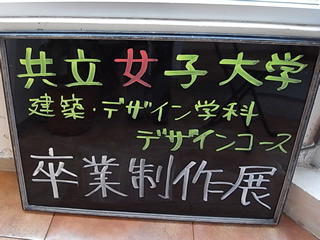 共立女子大学
建築・デザイン学科
デザインコース
卒業制作展